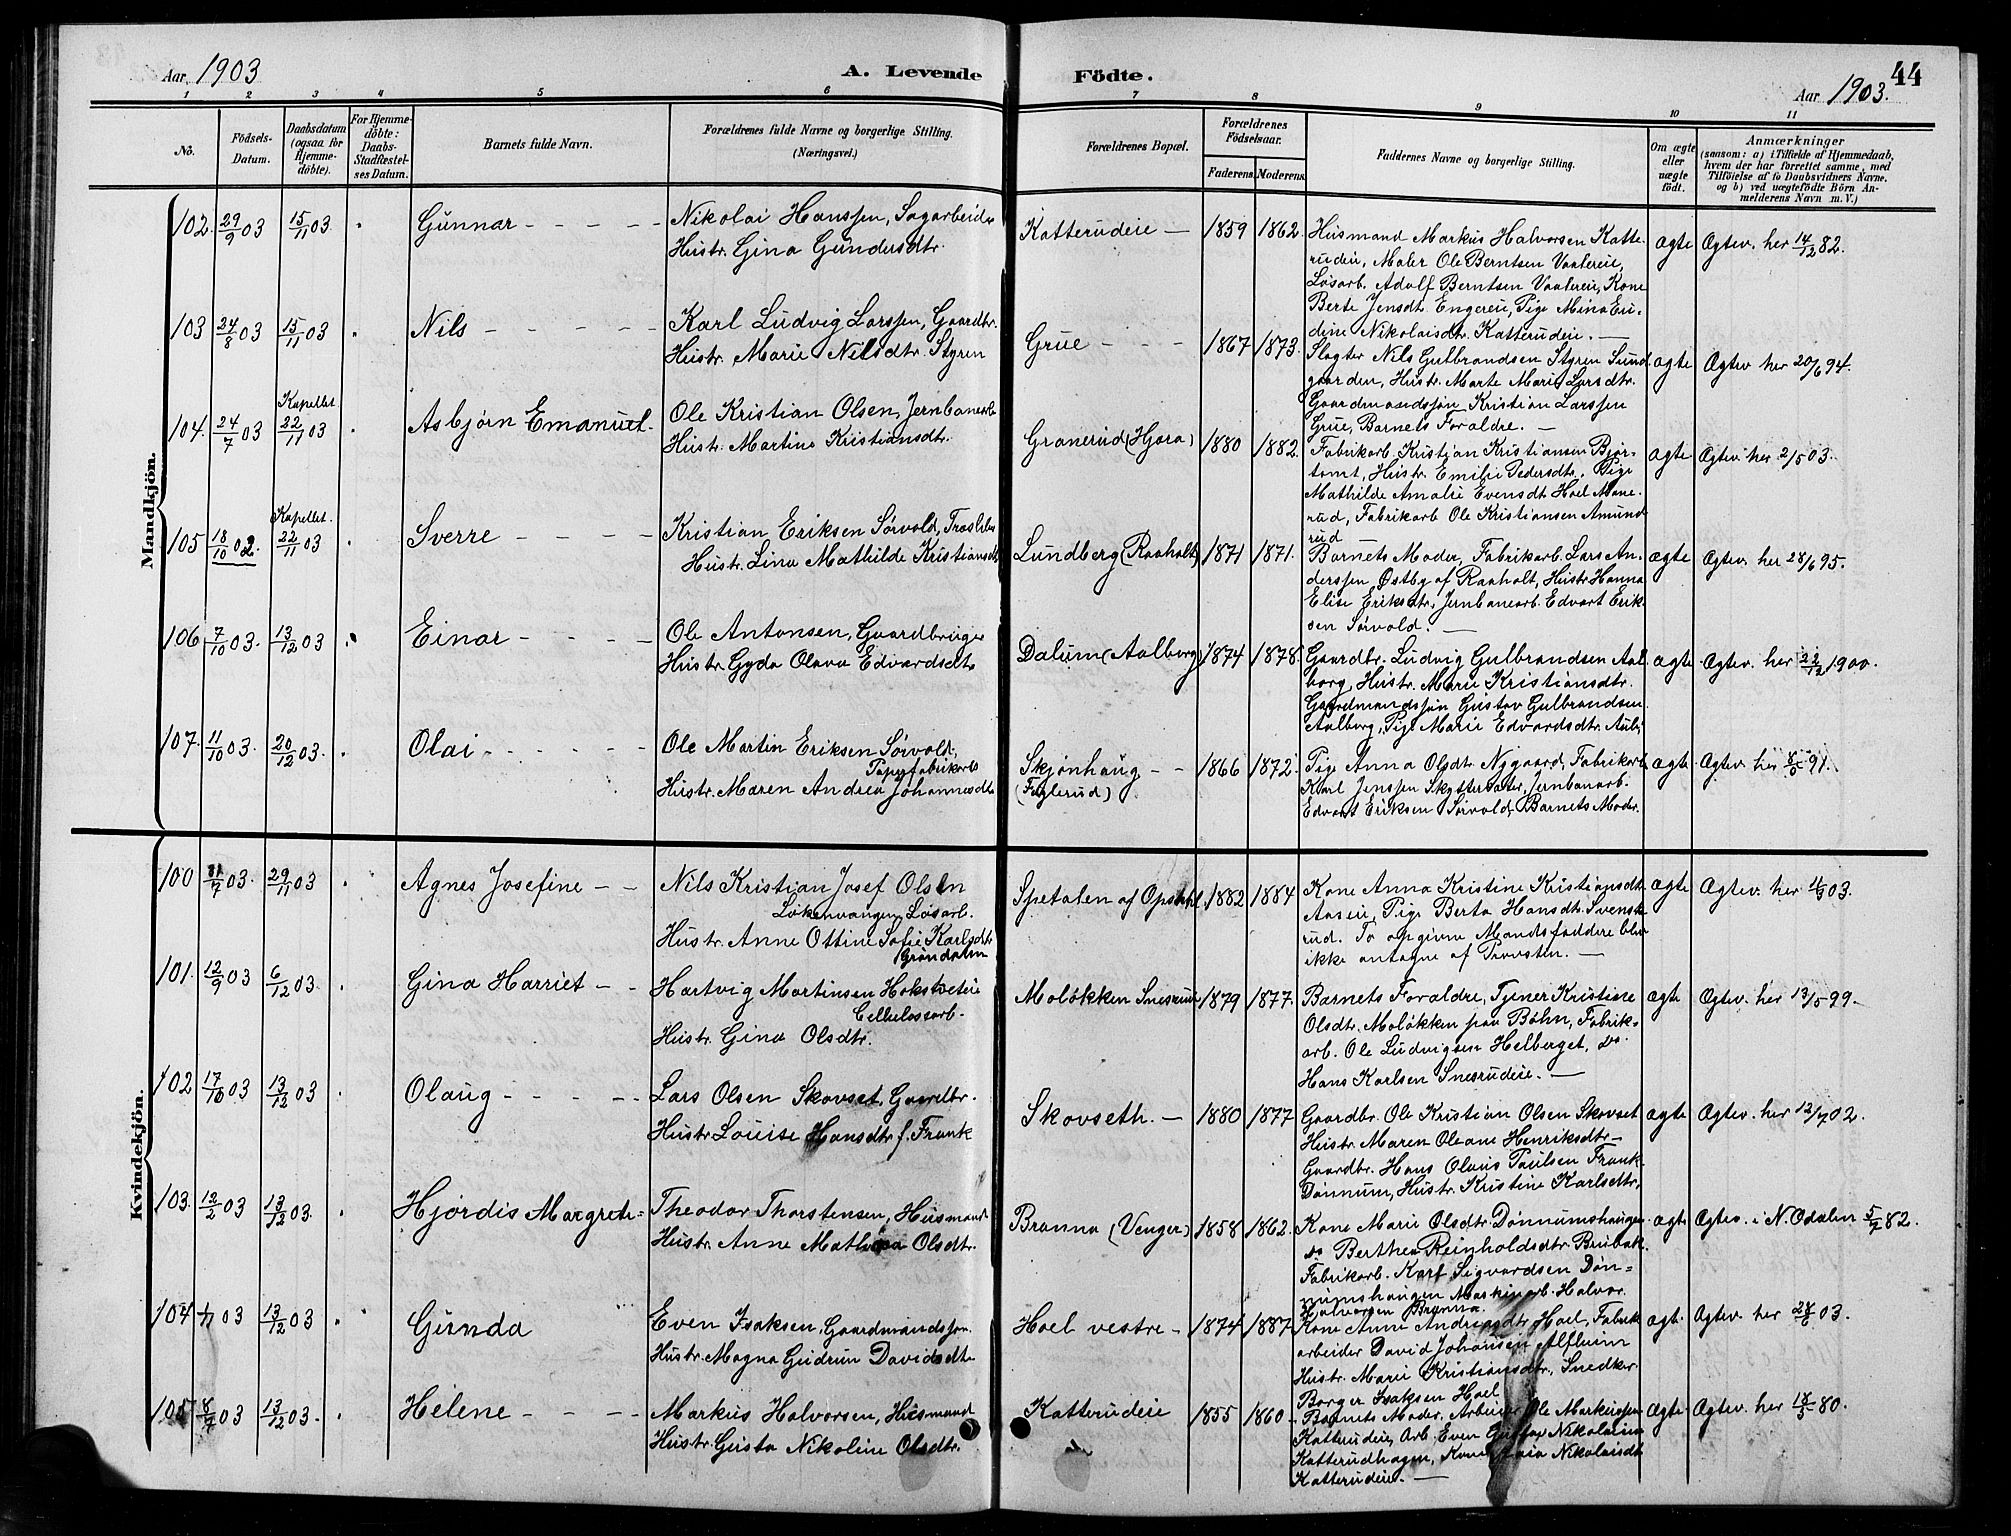 Aar 1903
A. Levende Födte.
44
Aar 1903.
1 2 3 4 5 6 7 8 9 10 11
No.
Födsels-Datum.
Daabsdatum (ogsaa for Hjemme-döbte).
For Hjemme-döbte: Daabs-Stadfæstel-ses Datum.
Barnets fulde Navn.
Forældrenes fulde Navne og borgerlige Stilling.
(Næringsvei.)
Forældrenes Bopæl.
Forældrenes Födselsaar.
Faderens Moderens
Faddernes Navne og borgerlige Stilling.
Om ægte eller uægte födt.
Anmærkninger
(saasom: a) i Tilfælde af Hjemmedaab, hvem der har forrettet samme, med Tilföielse af to Daabsvidners Navne, og b) ved uægtefödte Börn An-melderens Navn m. V.)
Mandkjön.
102. 29/9 03 15/11 03. Gunnar
Nikolai Hanssen, Sagarbeider
Hustr. Gina Gundersdtr.
Katterudeie 1859 1862.
Husmand Markus Halvorsen Katte-
rudeie, Maler Ole Berntsen Vaalereie,
Løsarb. Adolf Berntsen Vaalereie, Kone
Berte Jensdt. Engereie, Pige Mina En-
dine Nikolaisdtr. Katterudeie.
ægte Ægtev. her 14/12 82.
103 24/8 03 15/11 03 Nils
Karl Ludvig Larssen, Gaardbr.
Hustr. Marie Nilsdtr. Styren
Grue 1867 1873.
Slagter Nils Gulbrandsen Styren Sund
gaarden, Hustr. Marte Marie Larsdtr.
Gaardmandssøn Kristian Larssen
Grue, Barnets Foraldre.
ægte Ægtev her 20/6 94.
104. 24/7 03 Kapellet 22/11 03 Asbjørn Emanuel.
Ole Kristian Olsen, Jernbanearb
Hustr. Martine Kristiansdtr.
Granerud (Hjera) 1880 1882.
Fabrikarb. Kristian Kristiansen Bjør-
tomt, Hustr. Emilie Pedersdtr. Pige
Mathilde Amalie Evensdt. Hoel Mone-
rud, Fabrikarb Ole Kristiansen Amund
rud
ægte Ægtev. her 2/5 03.
105 18/10 02. Kapellet. 22/11 03 Sverre
Kristian Eriksen Sørvold,
Hustr. Lina Mathilde Kristiansdt
Lundberg (Raaholt) 1871 1871.
Barnets Moder, Fabrikarb. Lars An-
derssen, Østby af Raaholt, Hustr. Hanna
Elise Eriksdtr., Jernbanearb. Edvart Erik-
sen Sørvold.
ægte Ægtev. her 28/6 95.
106 7/10 03. 13/12 03 Einar
Ole Antonsen, Gaardbruger
Hustr. Gyda Olava Edvardsdtr
Dalum (Aalborg) 1874 1878.
Gaardbr. Ludvig Gulbrandsen Aal
borg, Hustr. Marie Kristiansdtr.
Gaardmandssøn Gustav Gulbrandsen
Aalborg, Pige Marie Edvardsdtr.
ægte Ægtev. her 22/12 1900.
107. 11/10 03. 20/12 03. Olai
Ole Martin Eriksen Sørvold,
Papirfabrikarb
Hustr. Maren Andrea Johannesdt
Skjønhaug
(Fuglerud) 1866 1872.
Pige Anna Olsdtr. Nygaard, Fabrikarb
Karl Jenssen Skyttersæter, Jernbanarb.
Edvart Eriksen Sørvold, Barnets Moder.
ægte Ægtev. her 91.
Kvindekjön.
100 31/7 03. 29/11 03 Agnes Josefine
Nils Kristian Josef Olsen
Løkenvangen Løsarb.
Hustr. Anne Ottine Sofie Karlsdtr
Spetalen af Opstahl 1882 1884
Kone Anna Kristine Kristiansdt.
Aaseie, Pige Berta Hansdtr. Svensk-
rud. To opgivne Mandsfaddere blev
ikke antagne af Provsten.
ægte Ægtev. her 03.
101. 12/9 03 6/12 03. Gina Harriet
Hartvig Martinsen Hokstveteie
Cellulosearb.
Hustr. Gina Olsdtr.
Moløkken Snesrudeie 1879 1877.
Barnets Foraldre, Tjener Kristine
Olsdtr. Moløkken paa Bøhn, Fabrik-
arb. Ole Ludvigsen Helberget, do.
Hans Karlsen Snesrudeie.
ægte Ægtev. her 13/5 99.
102 17/10 03 13/12 03 Olaug
Lars Olsen Skovset, Gaardbr.
Hustr. Louise Hansdtr f. Frank
Skovseth. 1880 1877
Gaardbr. Ole Kristian Olsen Skovset
Hustr. Maren Oleane Henriksdtr
Gaardbr. Hans Olaus Paulsen Frank
Dønnum, Hustr. Kristine Karlsdtr,
ægte Ægtev. her 12/7 02.
103. 12/2 03 13/12 03. Hjørdis Margrete
Theodor Thorstensen, Husmand
Hustr. Anne Olsdtr.
Branna (Venger) 1858 1862.
Kone Marie Olsdtr. Dønnumshaugen
do Berthea Reinholdsdtr. Brubak.
Fabrikarb. Karl Sigvardsen Døn-
numshaugen Maskinarb. Halvor
Halvorsen Branna.
ægte Ægtev. i N. Odalen 5/7 82.
104 03 13/12 03 Gunda
Even Isaksen, Gaardmandssøn
Hustr. Magna Gudrun Davidsdtr
Hoel vestre 1874 1887
Kone Anne Hoel, Fabrik
arbeider David Johansen Alfheim
Hustr. Marie Kristiansdtr, Snedker
Borger Isaksen Hoel
ægt. Ægtev. her 28/8 03.
105 8/7 03 13/12 03. Helene
Markus Halvorsen, Husmand
Hustr. Gusta Nikoline Olsdtr.
Katterudeie 1855 1860
Barnets Moder, Arbeider Ole Markussen
Katterudeie, Arb. Even Gustav Nikolaisen
Katterudhagen, Kone Nikolaisdt
Katterudeie.
ægte Ægtev. her 80.